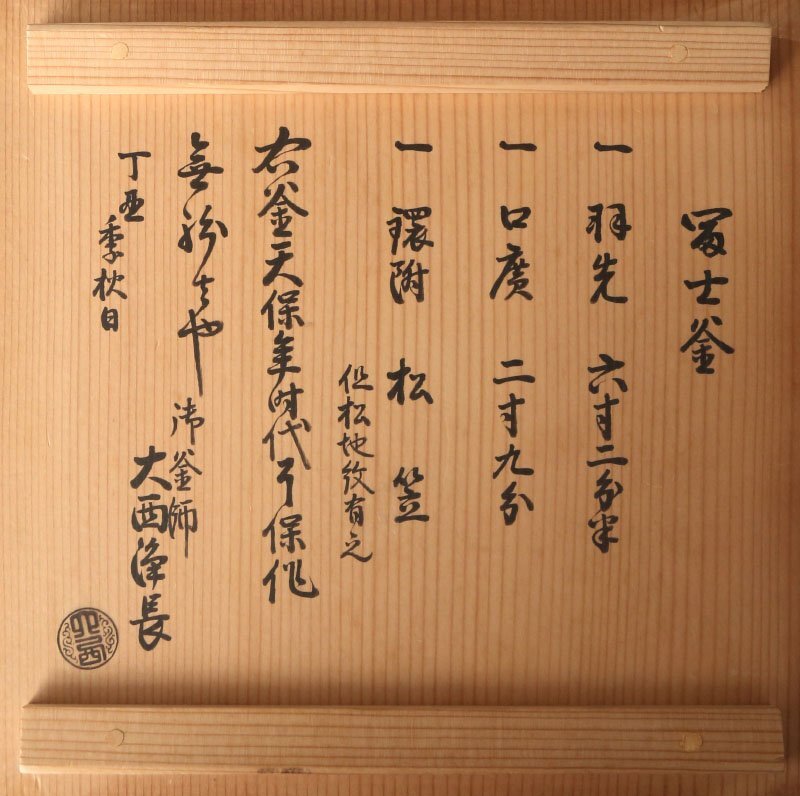 冨士釜
一 羽先 六寸二分半
一 口廣 二寸九分
一 環附 松笠
但松地紋有之
右釜天保年時代了保作
無紛者也
丁亥季秋日
御釜師
大西浄長
大西